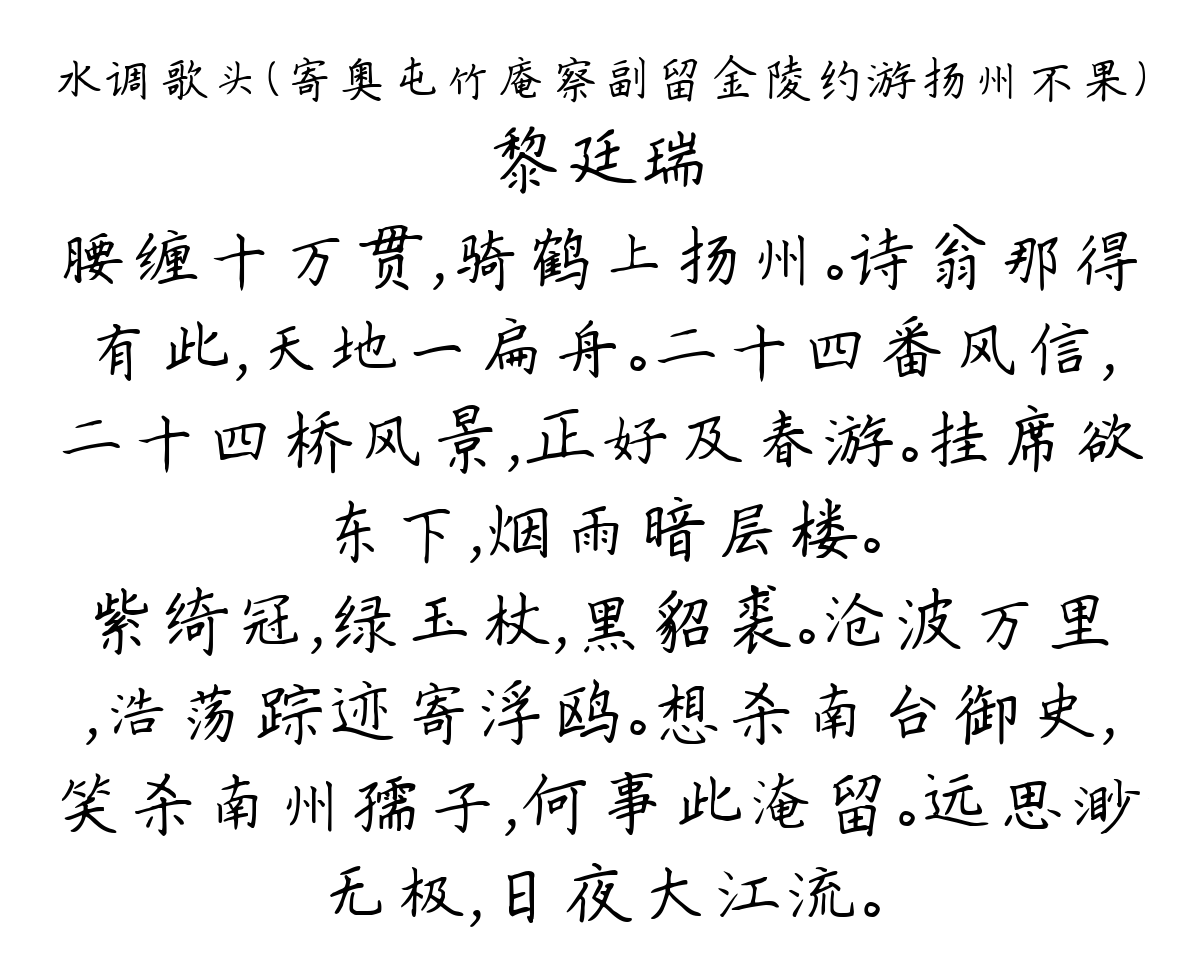 水调歌头(寄奥屯竹庵察副留金陵约游扬州不果)
黎廷瑞
腰缠十万贯,骑鹤上扬州。诗翁那得
有此,天地一扁舟。二十四番风信,
二十四桥风景,正好及春游。挂席欲
东下,烟雨暗层楼。
紫绮冠,绿玉杖,黑貂裘。沧波万里
,浩荡踪迹寄浮鸥。想杀南台御史,
笑杀南州孺子,何事此淹留。远思渺
无极,日夜大江流。